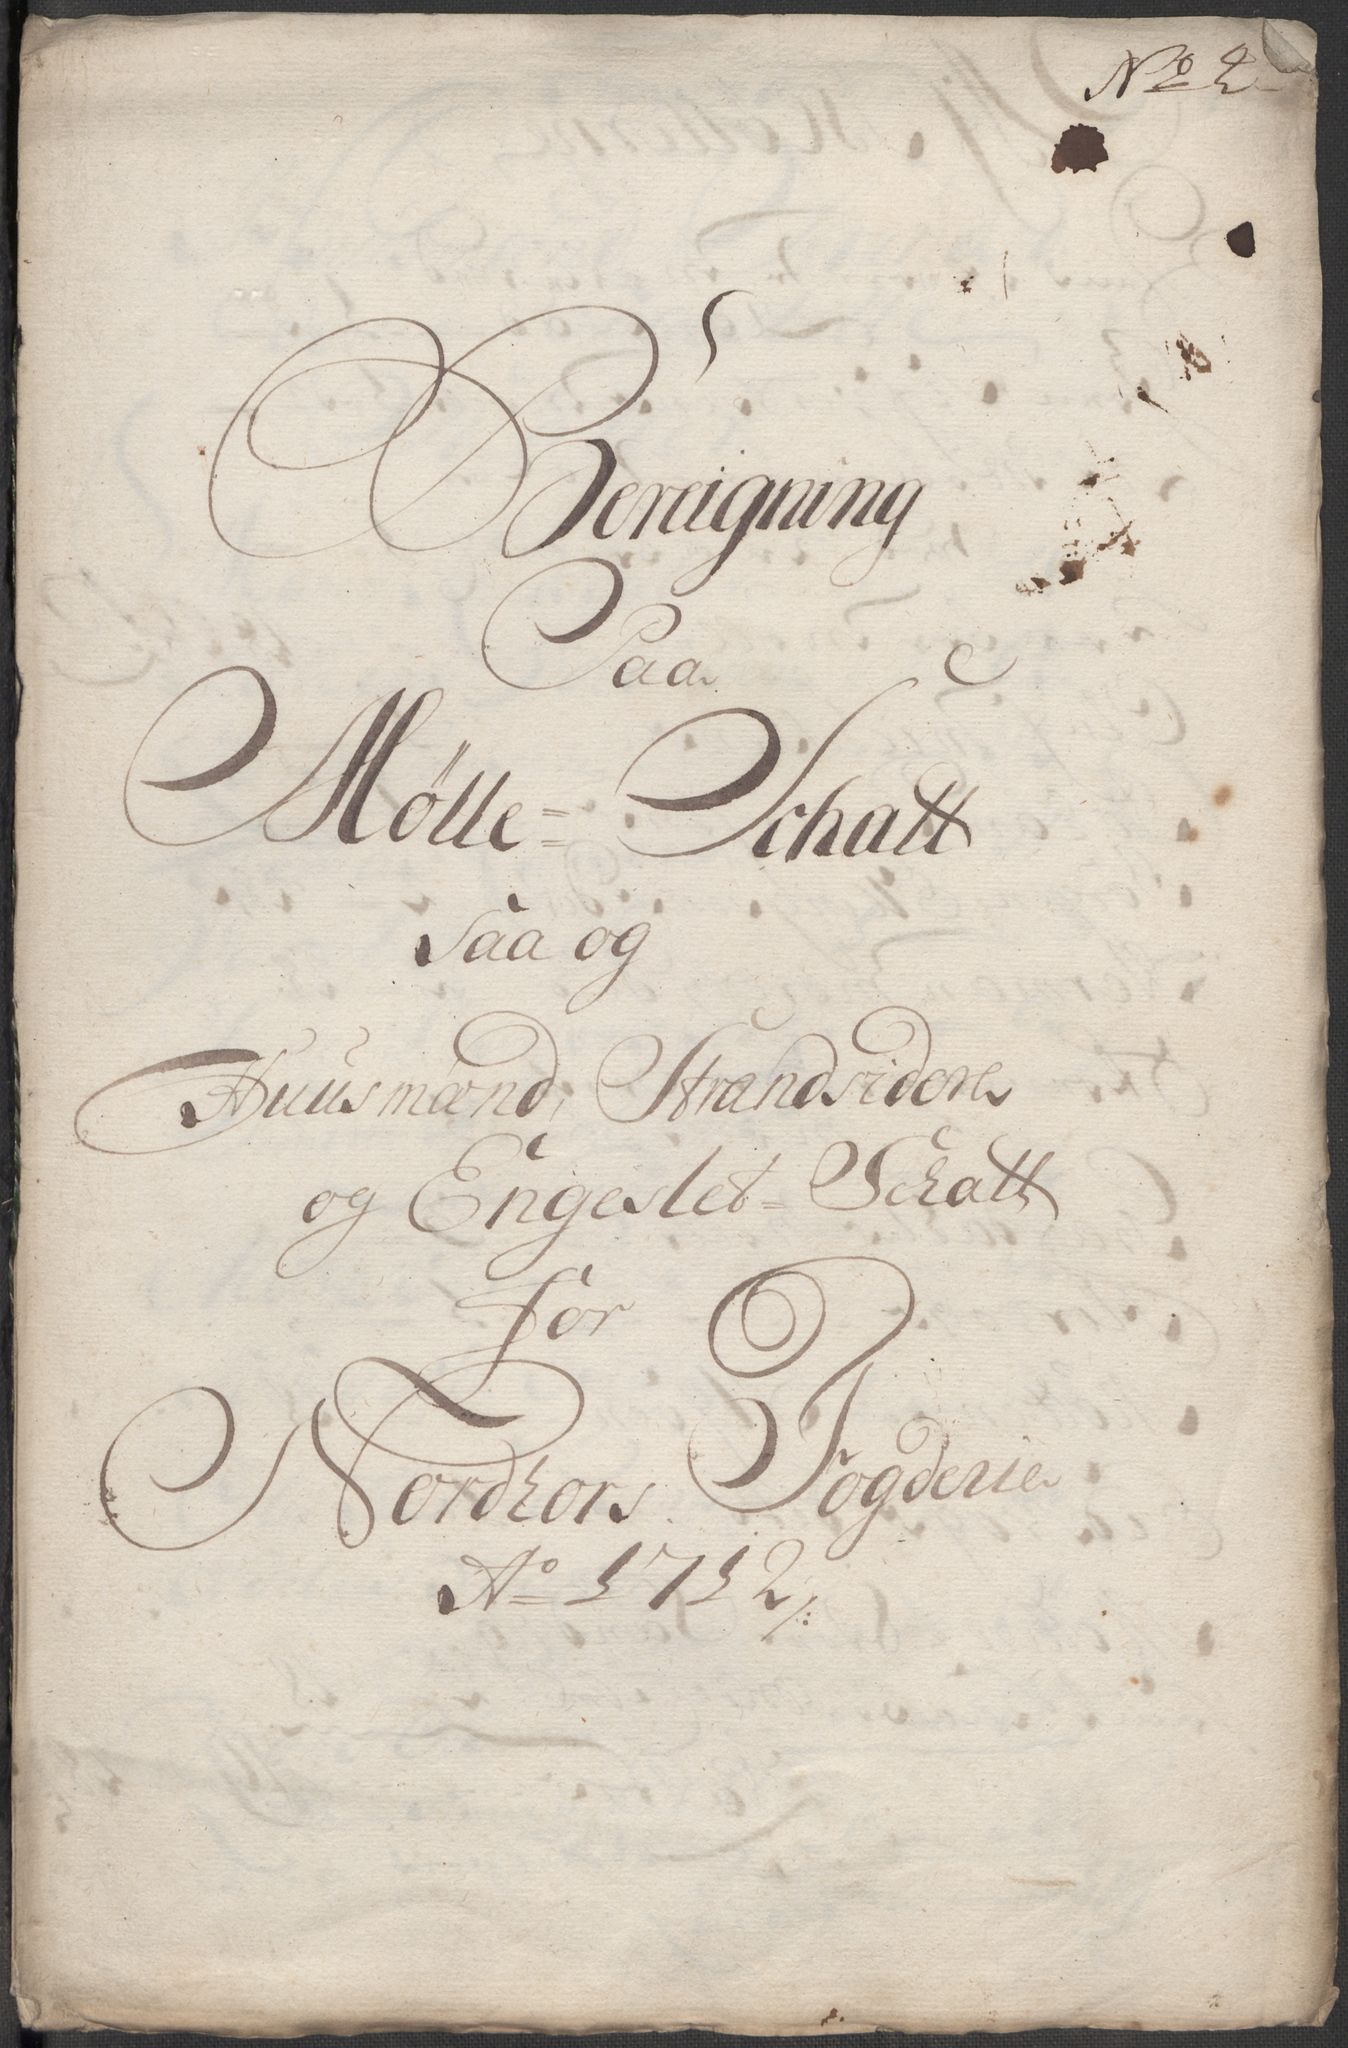 No 2
Bereigning
Paa
Mölle= Schatt
Saa og
Huusmænd, Strandsidere
og Engeslet= Schatt
for
Nordhors Fogderie
Ao 1712